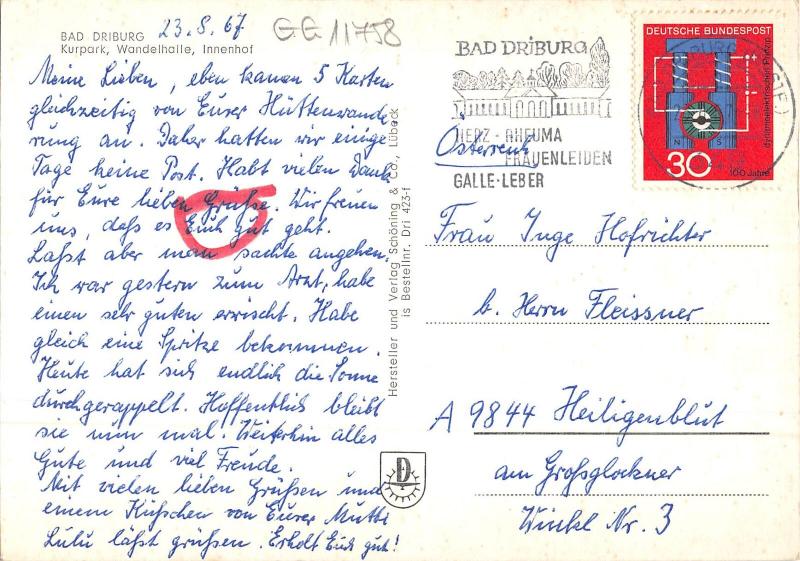 BAD DRIBURG
Kurpark, Wandelhalle, Innenhof
23.8.67
GG 11758
Meine Lieben, eben kamen 5 Karten
gleichzeitig von Eurer Hüttenwande
rung an. Daher hatten wir einige
Tage keine Post. Habt vielen Dank
für Eure lieben Grüße. Wir freuen
uns, daß es Euch gut geht.
Laßt aber man sachte angehen.
Ich war gestern zum Arzt, habe
einen sehr guten erwischt. Habe
gleich eine Spritze bekommen.
Heute hat sich endlich die Sonne
durchgerappelt. Hoffentlich bleibt
sie nun mal. Weiterhin alles
Gute und viel Freude.
Mit vielen lieben Grüßen und
einem Küßchen von Eurer Mutti
Lulu läßt grüßen. Erholt Euch gut!
Hersteller und Verlag Schöning & Co., Lübeck
is Bestellnr. Dri 423-f
D
BAD DRIBURG
HERZ · RHEUMA
FRAUENLEIDEN
GALLE · LEBER
DEUTSCHE BUNDESPOST
dynamoelektrisches Prinzip
100 Jahre
N S
30
Österreich
Frau Inge Hofrichter
b. Herrn Fleissner
A 9844 Heiligenblut
am Großglockner
Winkl Nr. 3